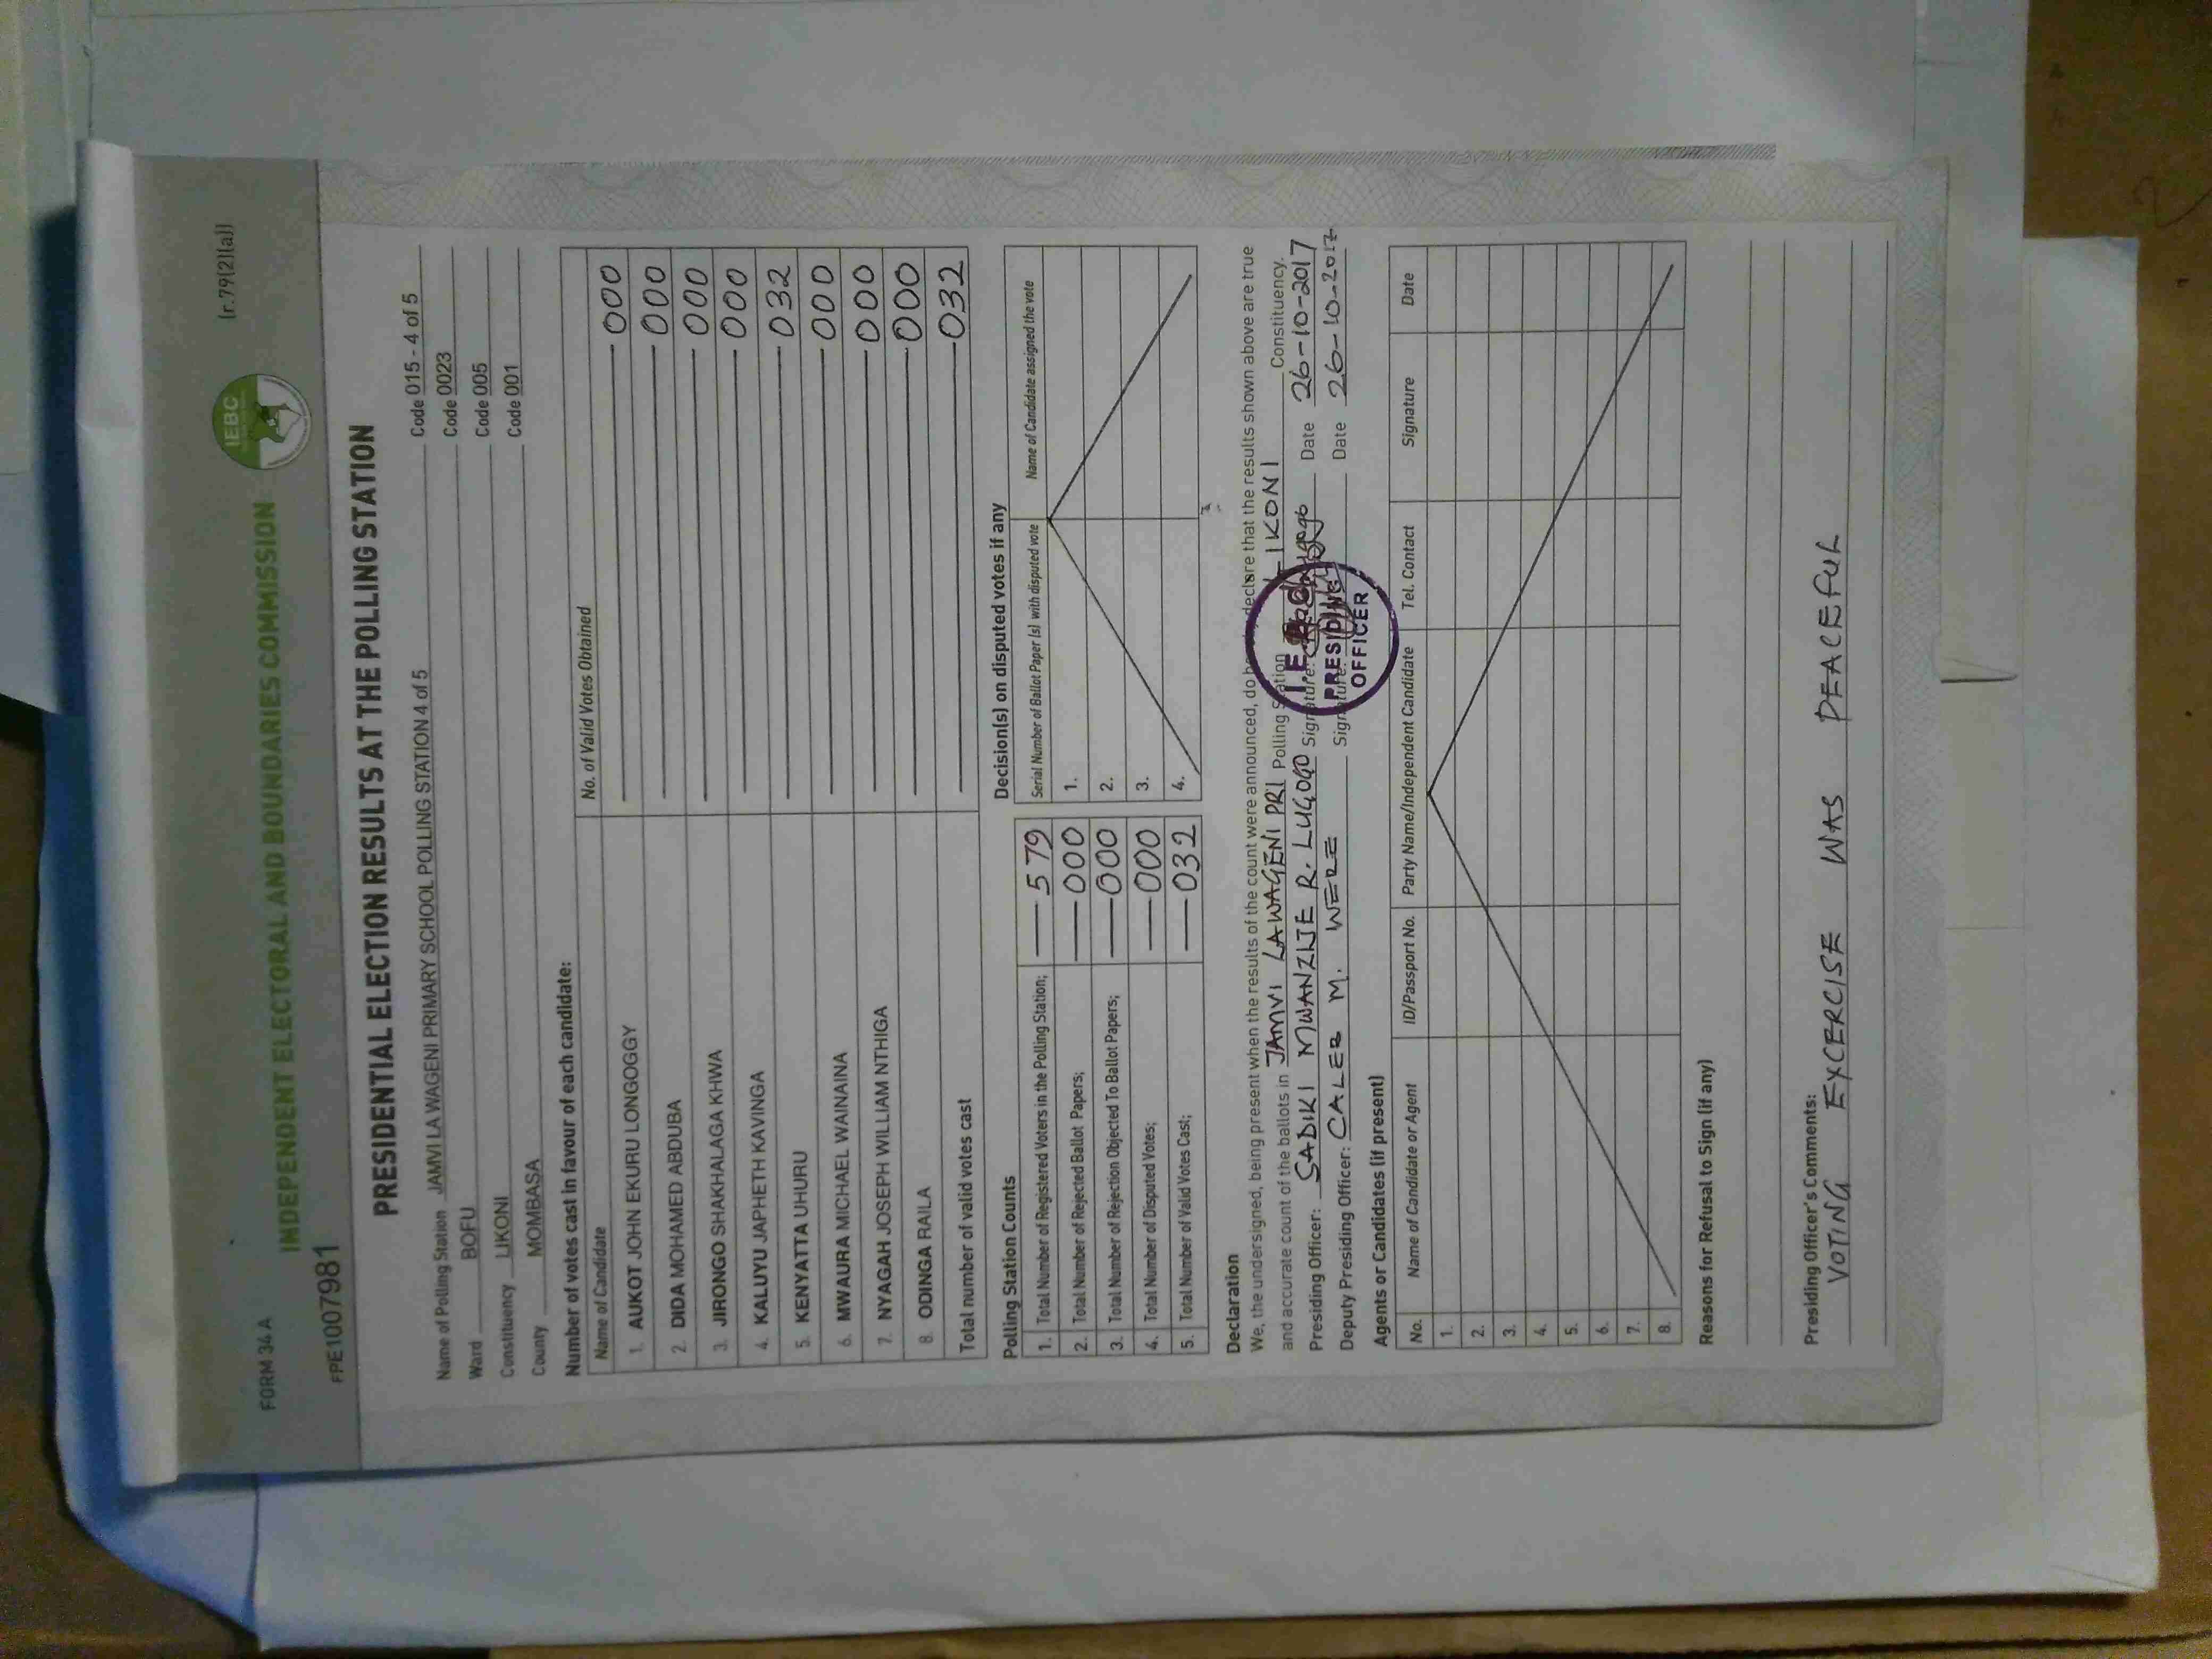 FORM 34 A
IEBC
(r.79(2)(a))
INDEPENDENT ELECTORAL AND BOUNDARIES COMMISSION
FPE1007981
PRESIDENTIAL ELECTION RESULTS AT THE POLLING STATION
Name of Polling Station JAMVI LA WAGENI PRIMARY SCHOOL POLLING STATION 4 of 5 Code 015 - 4 of 5
Ward BOFU Code 0023
Constituency LIKONI Code 005
County MOMBASA Code 001
Number of votes cast in favour of each candidate:
Name of Candidate No. of Valid Votes Obtained
1. AUKOT JOHN EKURU LONGOGGY 000
2. DIDA MOHAMED ABDUBA 000
3. JIRONGO SHAKHALAGA KHWA 000
4. KALUYU JAPHETH KAVINGA 000
5. KENYATTA UHURU 032
6. MWAURA MICHAEL WAINAINA 000
7. NYAGAH JOSEPH WILLIAM NTHIGA 000
8. ODINGA RAILA 000
Total number of valid votes cast 032
Polling Station Counts
1. Total Number of Registered Voters in the Polling Station; 579
2. Total Number of Rejected Ballot Papers; 000
3. Total Number of Rejection Objected To Ballot Papers; 000
4. Total Number of Disputed Votes; 000
5. Total Number of Valid Votes Cast; 032
Decision(s) on disputed votes if any
Serial Number of Ballot Paper (s) with disputed vote Name of Candidate assigned the vote
1.
2.
3.
4.
Declaration
We, the undersigned, being present when the results of the count were announced, do hereby declare that the results shown above are true
and accurate count of the ballots in JAMVI LA WAGENI PRI Polling Station LIKONI Constituency.
Presiding Officer: SADIKI MWANZIJE R. LUGOGO Signature: Date 26-10-2017
Deputy Presiding Officer: CALEB M. WERE Signature: Date 26-10-2017
PRESIDING
OFFICER
Agents or Candidates (if present)
No. Name of Candidate or Agent ID/Passport No. Party Name/Independent Candidate Tel. Contact Signature Date
1.
2.
3.
4.
5.
6.
7.
8.
Reasons for Refusal to Sign (if any)
Presiding Officer's Comments:
VOTING EXCERCISE WAS PEACEFUL